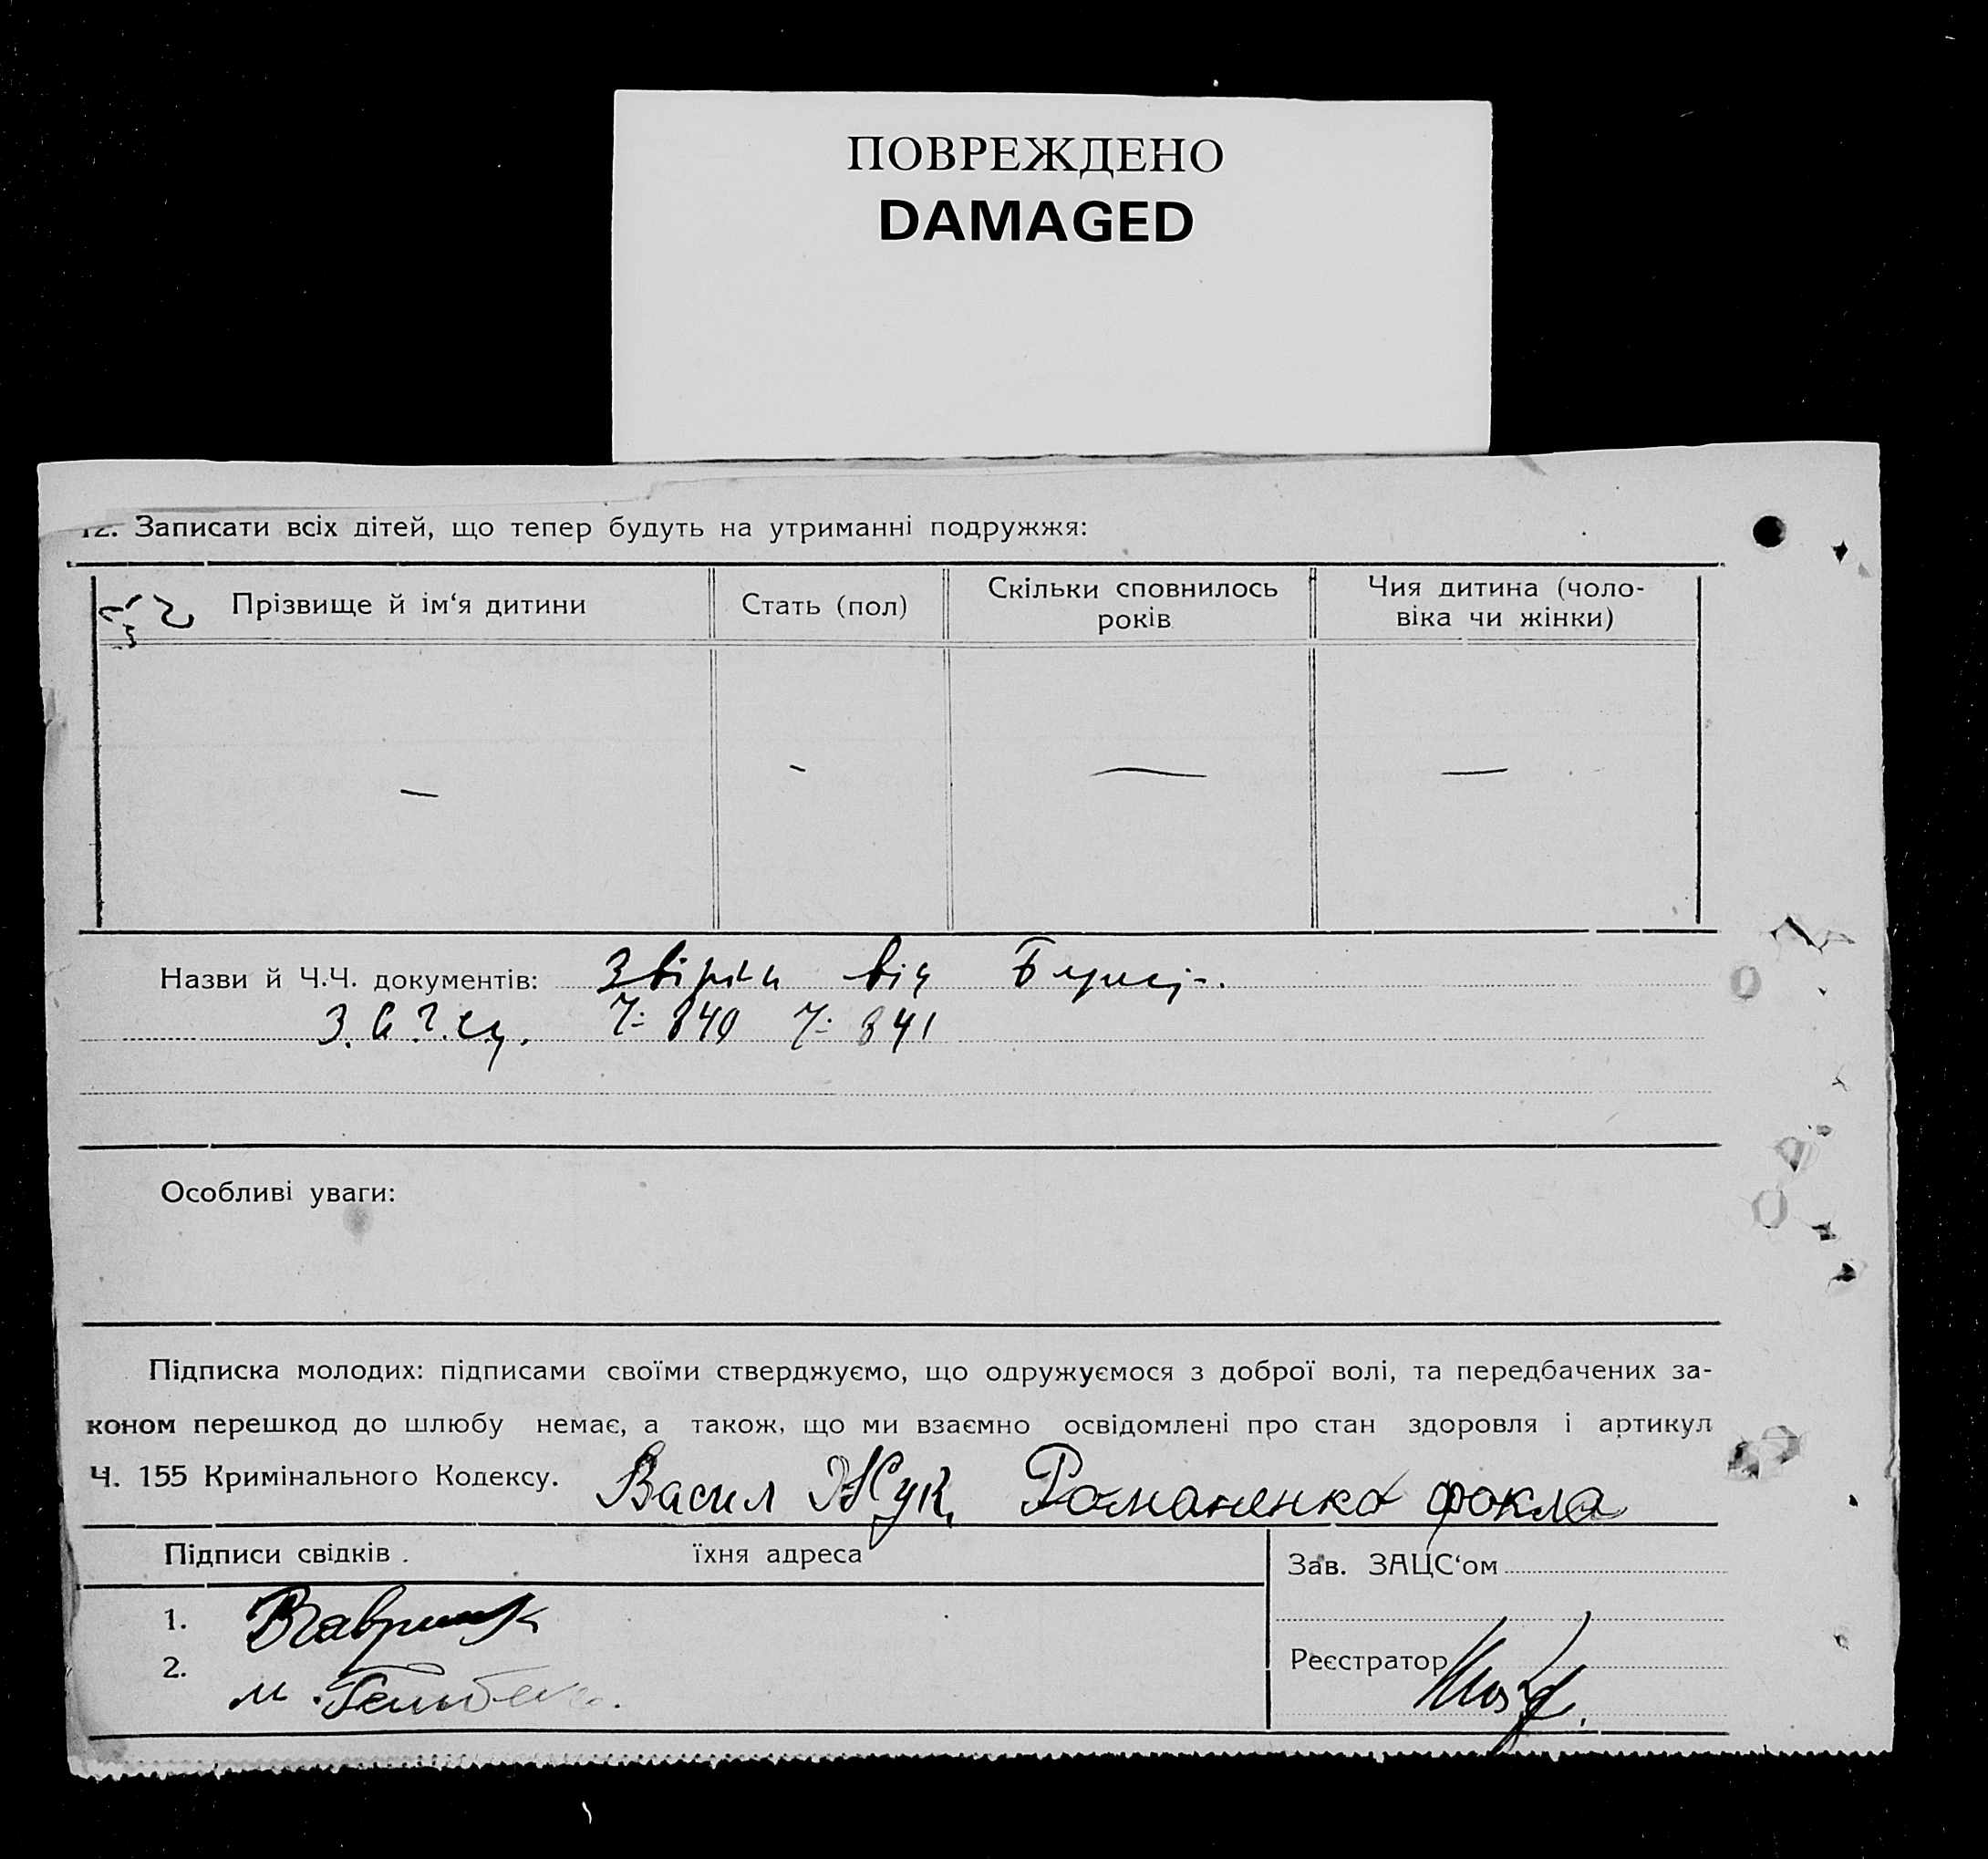 ПОВРЕЖДЕНО
DAMAGED
12. Записати всіх дітей, що тепер будуть на утриманні подружжя:
Прізвище й ім‘я дитини Стать (пол) Скільки сповнилось років Чия дитина (чоло-віка чи жінки)
— - — —
Назви й Ч.Ч. документів: від
Ч: 840 Ч: 841
Особливі уваги:
Підписка молодих: підписами своїми стверджуємо, що одружуємося з доброї волі, та передбачених за-
коном перешкод до шлюбу немає, а також, що ми взаємно освідомлені про стан здоровля і артикул
Ч. 155 Кримінального Кодексу. Васил Жук, Романенко фокла
Підписи свідків. їхня адреса
Зав. ЗАЦС‘ом
1.
Реєстратор
2. М.